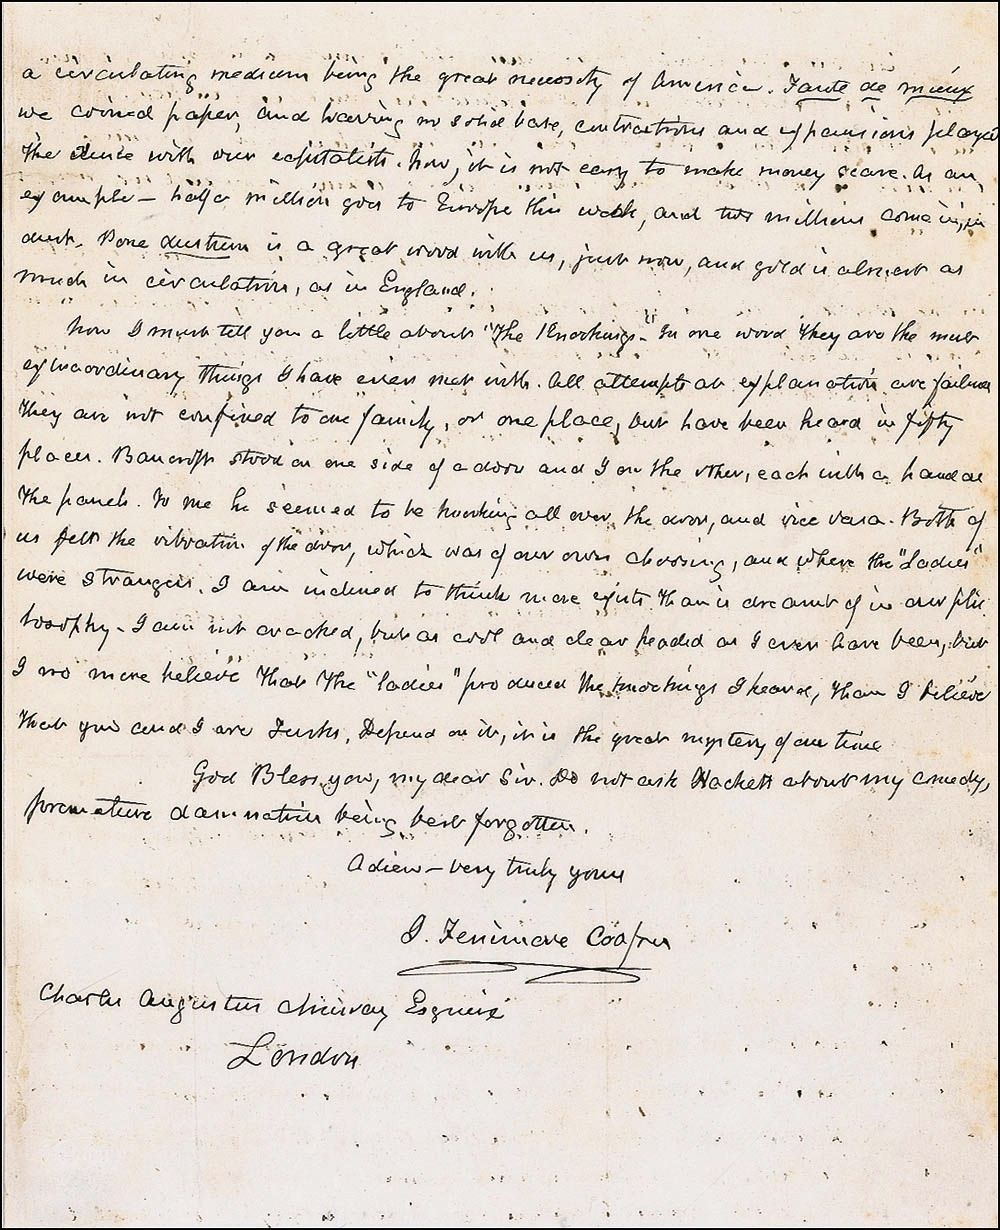 a circulating medium being the great necessity of America. Faute de mieux
we coined paper, and having no solid base, contractions and expansions played
the deuce with our capitalists. Now, it is not easy to make money scarce. As an
example – half a million goes to Europe this week, and two millions come in, in
dust. Bone dustrum is a great word with us, just now, and gold is almost as
much in circulation, as in England.
Now I must tell you a little about "The Knockings." In one word they are the most
extraordinary things I have ever met with. All attempts at explanation are failures
They are not confined to one family, or one place, but have been heard in fifty
places. Bancroft stood on one side of a door and I on the other, each with a hand on
the panels. To me he seemed to be knocking all over the door, and vice versa. Both of
us felt the vibration of the door, which was of our own choosing, and where the "ladies"
were strangers. I am inclined to think more exists than is dreamt of in our phi
losophy – I am not cracked, but as cool and clear headed as I ever have been, but
I no more believe that the "ladies" produced the knockings I heard, than I believe
that you and I are Turks. Depend on it, it is the great mystery of our time
God Bless you, my dear Sir. Do not ask Hackett about my comedy,
premature damnation being best forgotten.
Adieu – very truly yours
J. Fenimore Cooper
Charles Augustus Murray Esquire
London